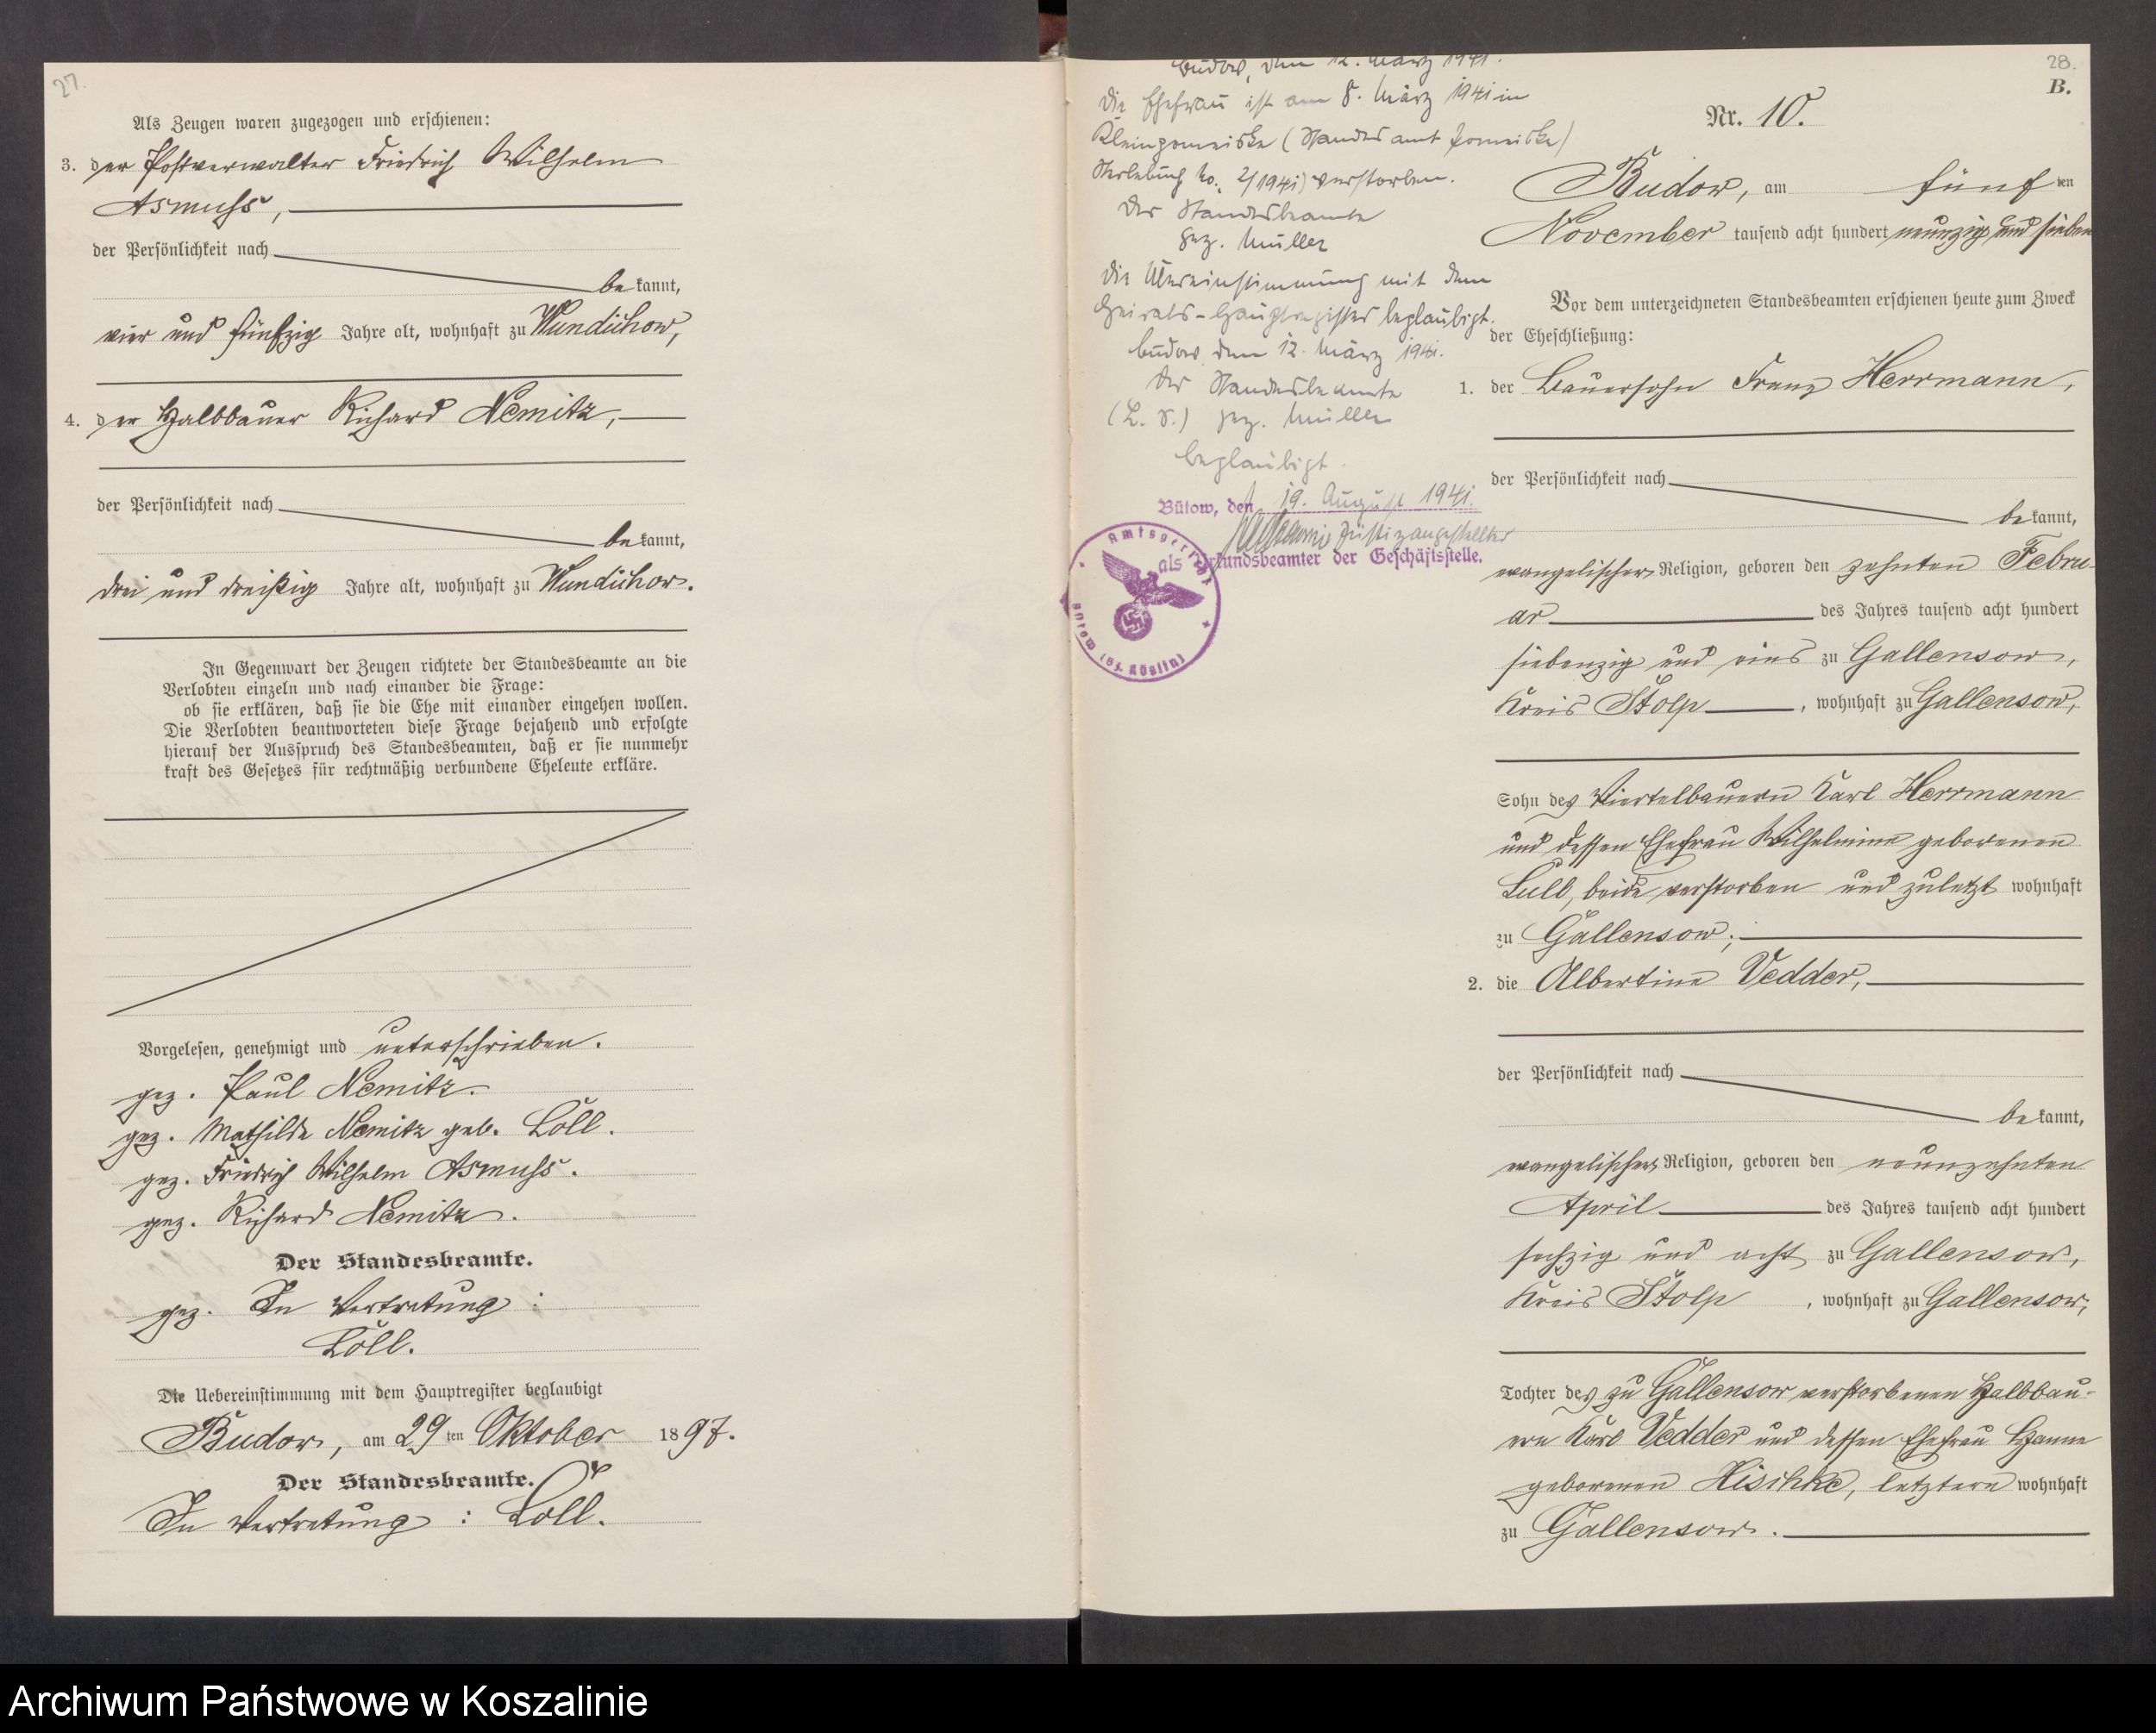 27.
Als Zeugen waren zugezogen und erschienen:
3. der Postverwalter Friedrich Wilhelm
Asmuss,
der Persönlichkeit nach
be kannt,
vier und fünfzig Jahre alt, wohnhaft zu Wundichow,
4. der Halbbauer Richard Nemitz,
der Persönlichkeit nach
be kannt,
drei und dreißig Jahre alt, wohnhaft zu Wundichow.
In Gegenwart der Zeugen richtete der Standesbeamte an die
Verlobten einzeln und nach einander die Frage:
ob sie erklären, daß sie die Ehe mit einander eingehen wollen.
Die Verlobten beantworteten diese Frage bejahend und erfolgte
hierauf der Ausspruch des Standesbeamten, daß er sie nunmehr
kraft des Gesetzes für rechtmäßig verbundene Eheleute erkläre.
Vorgelesen, genehmigt und unterschrieben.
gez. Paul Nemitz.
gez. Mathilde Nemitz geb. Löll.
gez. Friedrich Wilhelm Asmuss.
gez. Richard Nemitz.
Der Standesbeamte.
gez. In Vertretung:
Löll.
Die Uebereinstimmung mit dem Hauptregister beglaubigt
Budow, am 29 ten Oktober 1897.
Der Standesbeamte.
In Vertretung: Löll.
28.
B.
Budow, den 12. März 1941.
Die Ehefrau ist am 8. März 1941 in
Kleinpomeiske (Standesamt Pomeiske)
Sterbebuch No. 2/1941) verstorben.
Der Standesbeamte
gez. Müller
Die Übereinstimmung mit dem
Heirats-Hauptregister beglaubigt.
Budow, den 12. März 1941.
Der Standesbeamte
(L. S.) gez. Müller
beglaubigt.
Bütow, den 19. August 1941.
Justizangestellter
als Urkundsbeamter der Geschäftsstelle.
Amtsgericht
Bütow (Bz. Köslin)
Nr. 10.
Budow, am fünf ten
November tausend acht hundert neunzig und sieben
Vor dem unterzeichneten Standesbeamten erschienen heute zum Zweck
der Eheschließung:
1. der Bauersohn Franz Herrmann,
der Persönlichkeit nach
be kannt,
evangelischer Religion, geboren den zehnten Febru-
ar des Jahres tausend acht hundert
siebenzig und eins zu Gallensow,
Kreis Stolp, wohnhaft zu Gallensow,
Sohn des Viertelbauern Karl Herrmann
und dessen Ehefrau Wilhelmine geborenen
Lull, beide verstorben und zuletzt wohnhaft
zu Gallensow;
2. die Albertine Vedder,
der Persönlichkeit nach
be kannt,
evangelischer Religion, geboren den neunzehnten
April des Jahres tausend acht hundert
sechzig und acht zu Gallensow,
Kreis Stolp, wohnhaft zu Gallensow,
Tochter des zu Gallensow verstorbenen Halbbau-
ern Karl Vedder und dessen Ehefrau Hanne
geborenen Hischke, letztere wohnhaft
zu Gallensow.
Archiwum Państwowe w Koszalinie